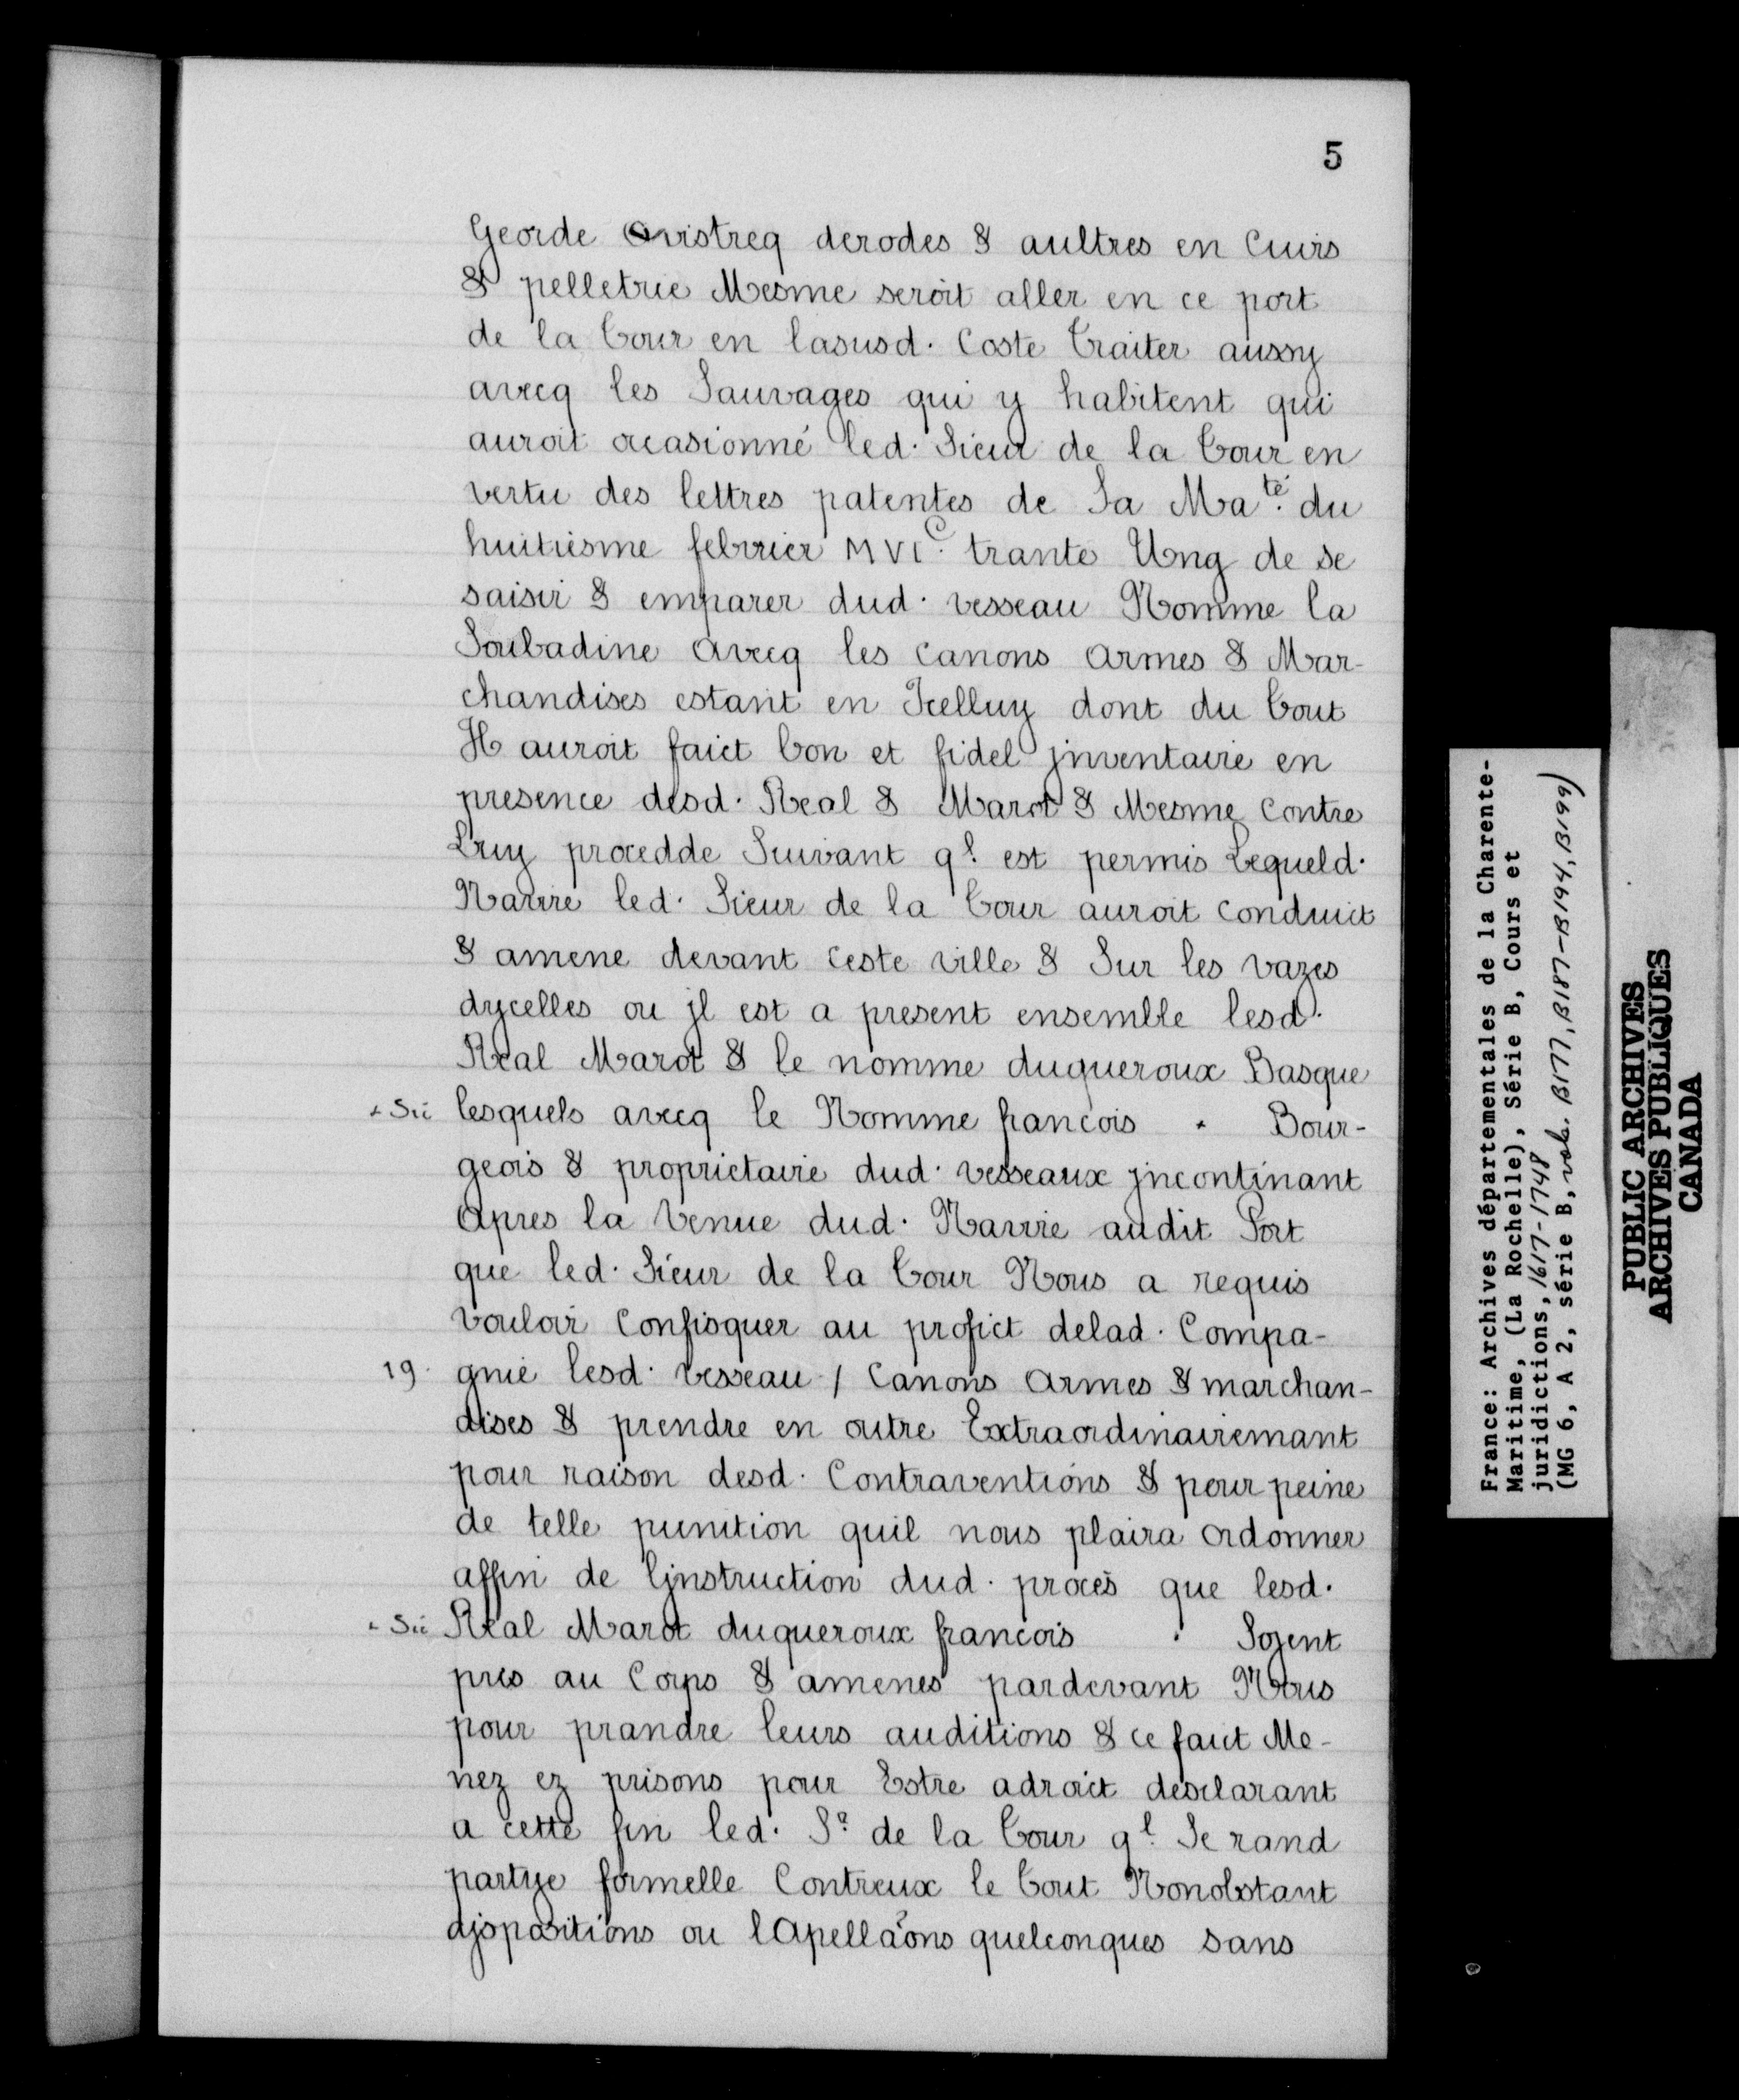 5
Georde Ovistreq derodes & aultres en Cuirs
& pelletrie Mesme seroit aller en ce port
de la Tour en lasusd. Coste Traiter aussy
avecq les Sauvages qui y habitent qui
auroit ocasionné led. Sieur de la Tour en
vertu des lettres patentes de Sa Ma.té du
huitiesme febvrier MVI.C trante Ung de se
saisir & emparer dud. vesseau Nomme la
Soubadine avecq les canons armes & Mar-
chandises estant en Icelluy dont du Tout
Il auroit faict bon et fidel jnventaire en
presence desd. Real & Marot & Mesme contre
Luy procedde Suivant q.l est permis Lequeld.
Navire led. Sieur de la Tour auroit conduict
& amene devant ceste ville & Sur les vazes
dycelles ou jl est a present ensemble lesd.
Real Marot & le nomme duqueroux Basque
+ Sic lesquels avecq le Nomme francois + Bour-
geois & proprietaire dud. vesseaux jncontinant
apres la Venue dud. Navire audit Port
que led. Sieur de la Tour Nous a requis
vouloir Confisquer au profict delad. Compa-
19. gnie lesd. vesseau / Canons armes & marchan-
dises & prendre en outre Extraordinairemant
pour raison desd. Contraventions & pour peine
de telle punition quil nous plaira ordonner
affin de ljnstruction dud. procès que lesd.
+ Sic Real Marot duqueroux francois + Soient
pris au Corps & amenes pardevant Nous
pour prandre leurs auditions & ce fait Me-
nez ez prisons pour Estre adroict desclarant
a cette fin led. S.r de la Tour q.l Se rand
partye formelle Contreux le Tout Nonobstant
ajspositions ou lApellãons quelconques sans
France: Archives départementales de la Charente-
Maritime, (La Rochelle), Série B, Cours et
juridictions, 1617-1748
(MG 6, A 2, série B, vols. B177, B187-B194, B199)
PUBLIC ARCHIVES
ARCHIVES PUBLIQUES
CANADA